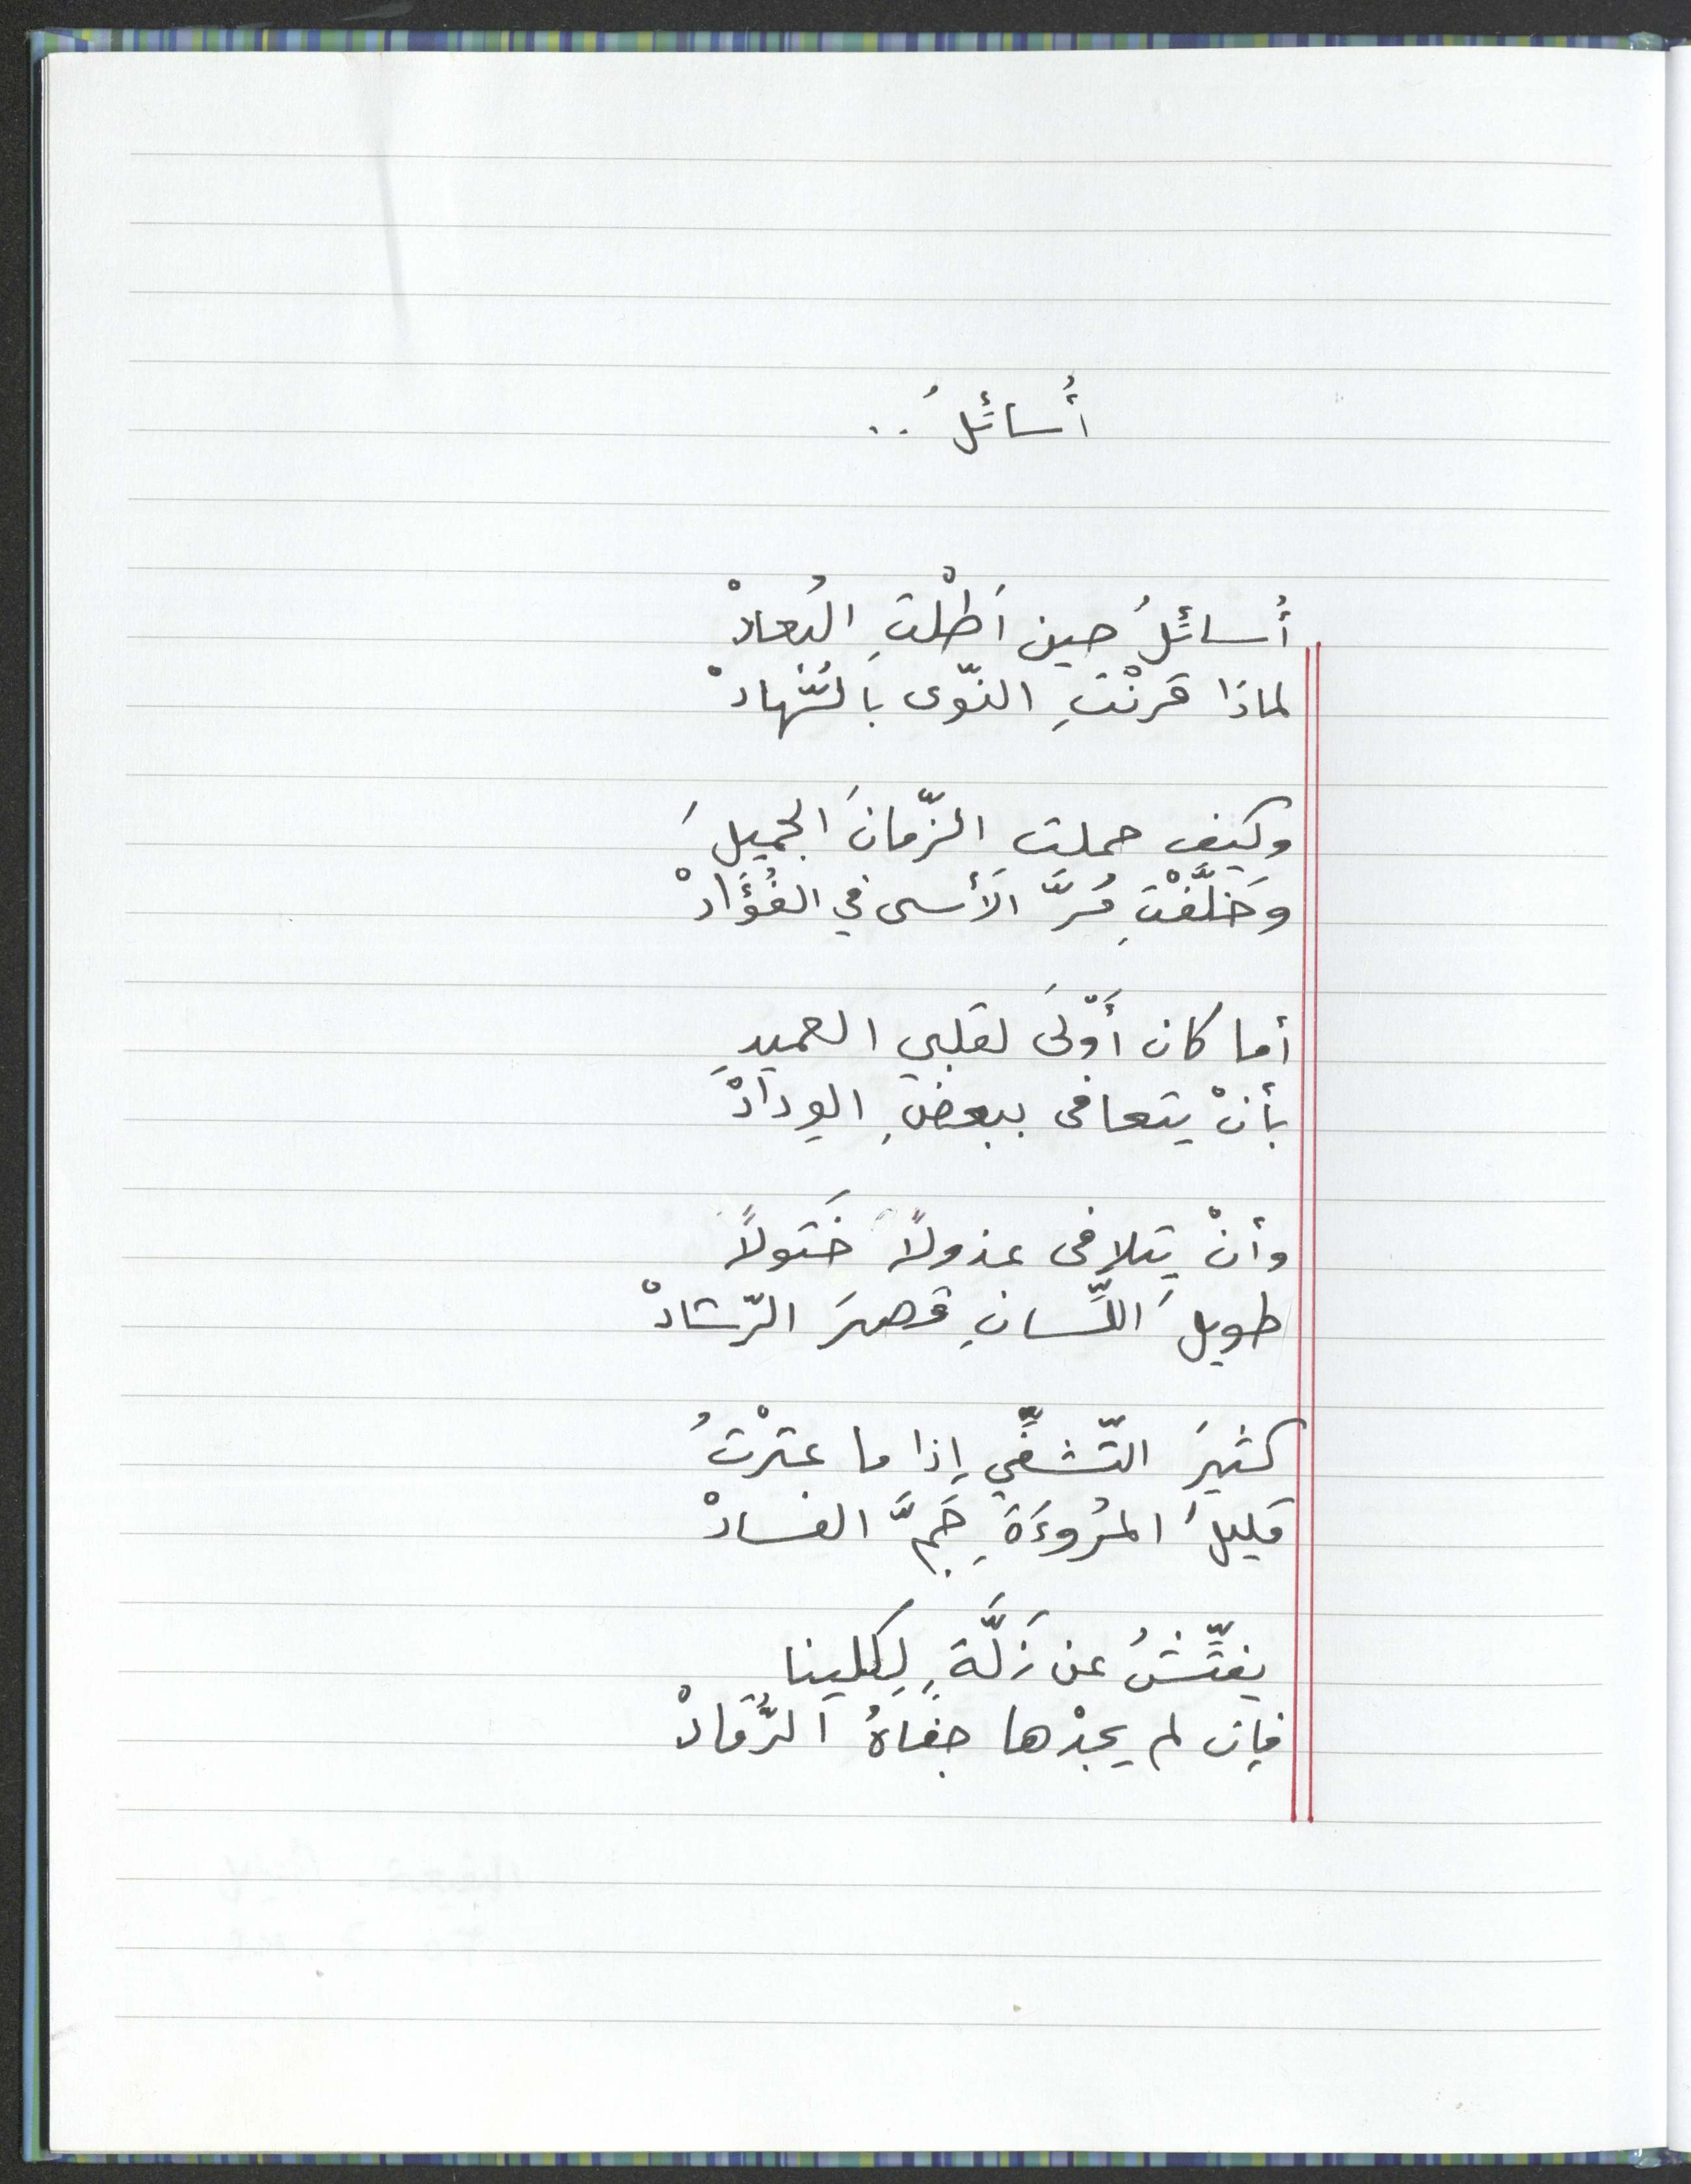 أُسائِلُ ..
أُسائِلُ حين أَطلْتِ البُعادْ
لماذا قرنْتِ النّوى بالسُّهادْ
وكيف حملتِ الزّمانَ الجميلَ
وَخلَّفْتِ مُرَّ الأسى في الفُؤَادْ
أما كان أَوْلىَ لقلبي العميدِ
بأنْ يتعافى ببعضِ الوِدَادْ
وأنْ يتلافى عذولاً خَتولاً
طويلَ اللِّسانِ قصيرَ الرّشادْ
كثيرَ التّشفِّي إذا ما عثرْتُ
قليلُ المرُوءَةِ جَمَّ الفسادْ
يفتِّشُ عن زَلَّةٍ لِكلينا
فإن لم يجدْها جفَاهُ الرُّقادْ